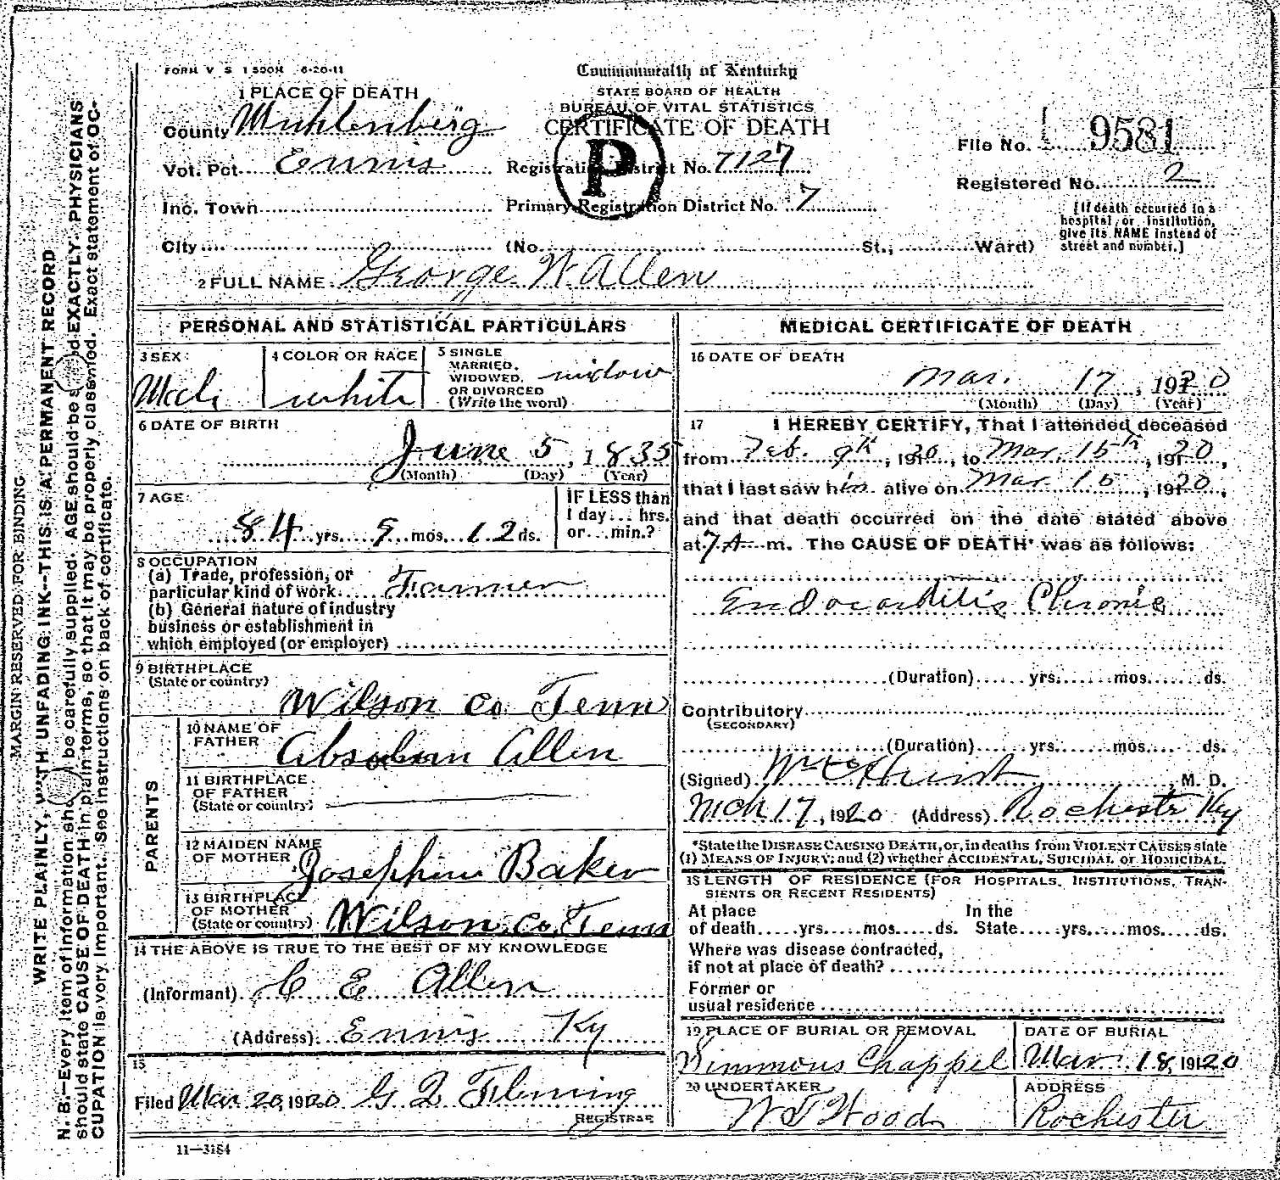 FORM V S 1 500M 6-20-11
Commonwealth of Kentucky
STATE BOARD OF HEALTH
BUREAU OF VITAL STATISTICS
CERTIFICATE OF DEATH
P
1 PLACE OF DEATH
County Muhlenberg
Vot. Pct. Ennis
Inc. Town
City (No. St., Ward)
Registration District No. 7127
Primary Registration District No. 7
File No. 9581
Registered No. 2
[If death occurred in a
hospital or institution,
give its NAME instead of
street and number.]
2 FULL NAME George W Allen
PERSONAL AND STATISTICAL PARTICULARS
3 SEX
Male
4 COLOR OR RACE
white
5 SINGLE
MARRIED,
WIDOWED,
OR DIVORCED
(Write the word)
widow
6 DATE OF BIRTH
June 5, 1835
(Month) (Day) (Year)
7 AGE
84 yrs. 9 mos. 12 ds.
IF LESS than
1 day... hrs.
or...min.?
8 OCCUPATION
(a) Trade, profession, or
particular kind of work Farmer
(b) General nature of industry
business or establishment in
which employed (or employer)
9 BIRTHPLACE
(State or country)
Wilson co. Tenn
PARENTS
10 NAME OF
FATHER
Absolum Allen
11 BIRTHPLACE
OF FATHER
(State or country)
12 MAIDEN NAME
OF MOTHER
Josephine Baker
13 BIRTHPLACE
OF MOTHER
(State or country) Wilson, co. Tenn
14 THE ABOVE IS TRUE TO THE BEST OF MY KNOWLEDGE
(Informant) C E Allen
(Address) Ennis Ky
15
Filed Mar 20, 1920 G L Fleming
REGISTRAR
11—3184
MEDICAL CERTIFICATE OF DEATH
16 DATE OF DEATH
Mar. 17, 1920
(Month) (Day) (Year)
17 I HEREBY CERTIFY, That I attended deceased
from Feb. 9th, 1920, to Mar 15th, 1920,
that I last saw him alive on Mar 15, 1920,
and that death occurred on the date stated above
at 7 A m. The CAUSE OF DEATH* was as follows:
Endocarditis Chronic
(Duration) yrs. mos. ds.
Contributory
(SECONDARY)
(Duration) yrs. mos. ds.
(Signed) M. D.
Mch 17, 1920 (Address) Rochester Ky
*State the DISEASE CAUSING DEATH, or, in deaths from VIOLENT CAUSES state
(1) MEANS OF INJURY; and (2) whether ACCIDENTAL, SUICIDAL or HOMICIDAL.
18 LENGTH OF RESIDENCE (FOR HOSPITALS, INSTITUTIONS, TRAN-
SIENTS OR RECENT RESIDENTS)
At place In the
of death yrs. mos. ds. State yrs. mos. ds.
Where was disease contracted,
if not at place of death?
Former or
usual residence
19 PLACE OF BURIAL OR REMOVAL
Simmons Chappel
DATE OF BURIAL
Mar. 18, 1920
20 UNDERTAKER
W J Wood
ADDRESS
Rochester
MARGIN RESERVED FOR BINDING
WRITE PLAINLY, WITH UNFADING INK—THIS IS A PERMANENT RECORD
N. B.—Every item of information should be carefully supplied. AGE should be stated EXACTLY. PHYSICIANS
should state CAUSE OF DEATH in plain terms, so that it may be properly classified. Exact statement of OC-
CUPATION is very important. See instructions on back of certificate.